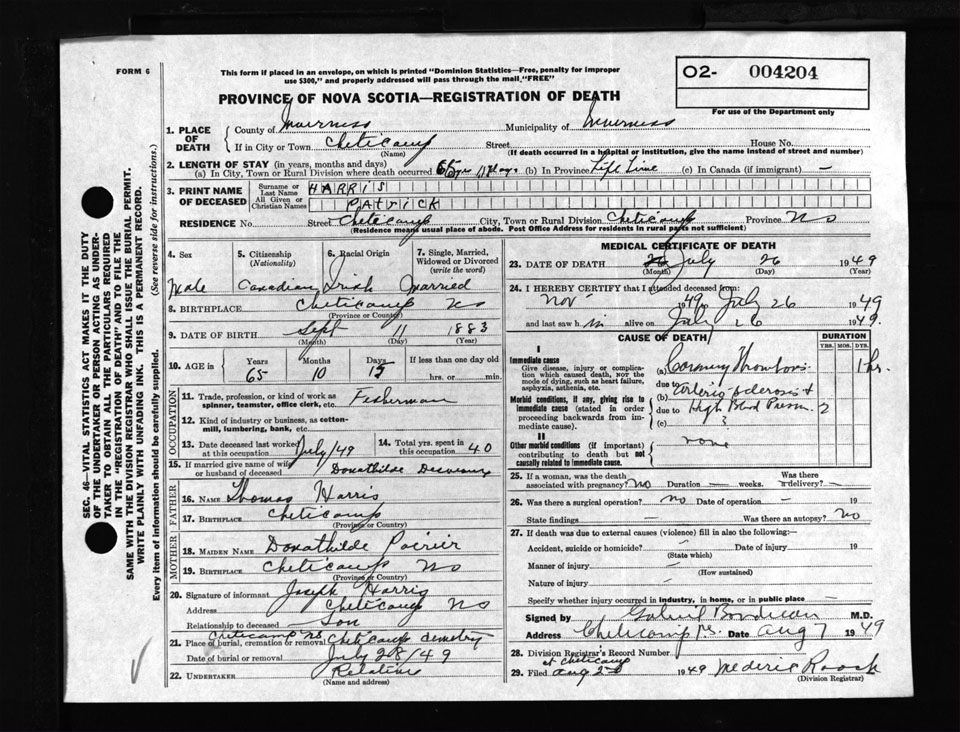 FORM 6
This form if placed in an envelope, on which is printed "Dominion Statistics—Free, penalty for improper
use $300," and properly addressed will pass through the mail "FREE"
O2- 004204
For use of the Department only
PROVINCE OF NOVA SCOTIA—REGISTRATION OF DEATH
1. PLACE OF DEATH
County of Inverness Municipality of Inverness
If in City or Town Cheticamp Street House No.
(Name) (If death occurred in a hospital or institution, give the name instead of street and number)
2. LENGTH OF STAY (in years, months and days)
(a) In City, Town or Rural Division where death occurred 65 yrs (b) In Province Life Time (c) In Canada (if immigrant) —
3. PRINT NAME OF DECEASED
Surname or Last Name HARRIS
All Given or Christian Names PATRICK
RESIDENCE No. Street Cheticamp City, Town or Rural Division Cheticamp Province NS
(Residence means usual place of abode. Post Office Address for residents in rural parts not sufficient)
4. Sex 5. Citizenship (Nationality) 6. Racial Origin 7. Single, Married, Widowed or Divorced (write the word)
Male Canadian Irish Married
8. BIRTHPLACE Cheticamp NS
(Province or Country)
9. DATE OF BIRTH Sept 11 1883
(Month) (Day) (Year)
10. AGE in Years Months Days If less than one day old
65 10 15 hrs. or min.
OCCUPATION
11. Trade, profession, or kind of work as spinner, teamster, office clerk, etc. Fisherman
12. Kind of industry or business, as cotton-mill, lumbering, bank, etc.
13. Date deceased last worked at this occupation July/49 14. Total yrs. spent in this occupation 40
15. If married give name of wife or husband of deceased Donathilde Desveaux
FATHER
16. NAME Thomas Harris
17. BIRTHPLACE Cheticamp
(Province or Country)
MOTHER
18. MAIDEN NAME Donathilde Poirier
19. BIRTHPLACE Cheticamp NS
(Province or Country)
20. Signature of informant Joseph Harris
Address Cheticamp NS
Relationship to deceased Son
21. Place of burial, cremation or removal Cheticamp NS Cheticamp Cemetry
Date of burial or removal July 28/49
22. UNDERTAKER Relative
(Name and address)
MEDICAL CERTIFICATE OF DEATH
23. DATE OF DEATH July 26 1949
(Month) (Day) (Year)
24. I HEREBY CERTIFY that I attended deceased from:
Nov 1949 to July 26 1949
and last saw h im alive on July 26 1949.
CAUSE OF DEATH DURATION
YRS. MOS. DYS.
I
Immediate cause
Give disease, injury or complication which caused death, NOT the mode of dying, such as heart failure, asphyxia, asthenia, etc.
(a) Coronary Thrombosis 1 hr.
due to
Morbid conditions, if any, giving rise to immediate cause (stated in order proceeding backwards from immediate cause).
(b) Arteriosclerosis +
due to High Blood Pressure 2
(c)
II
Other morbid conditions (if important) contributing to death but not causally related to immediate cause.
none
25. If a woman, was the death associated with pregnancy? NO Duration — weeks. Was there a delivery? —
26. Was there a surgical operation? no Date of operation — 19
State findings — Was there an autopsy? NO
27. If death was due to external causes (violence) fill in also the following:—
Accident, suicide or homicide? — Date of injury 19
(State which)
Manner of injury —
(How sustained)
Nature of injury —
Specify whether injury occurred in industry, in home, or in public place —
Signed by Gabriel Boudreau M.D.
Address Cheticamp NS. Date Aug 7 1949
28. Division Registrar's Record Number
at Cheticamp
29. Filed Aug 1949 Mederic Roach
(Division Registrar)
SEC. 46—VITAL STATISTICS ACT MAKES IT THE DUTY
OF THE UNDERTAKER OR PERSON ACTING AS UNDER-
TAKER TO OBTAIN ALL THE PARTICULARS REQUIRED
IN THE "REGISTRATION OF DEATH" AND TO FILE THE
SAME WITH THE DIVISION REGISTRAR WHO SHALL ISSUE THE BURIAL PERMIT.
WRITE PLAINLY WITH UNFADING INK. THIS IS A PERMANENT RECORD.
Every item of information should be carefully supplied. (See reverse side for instructions.)